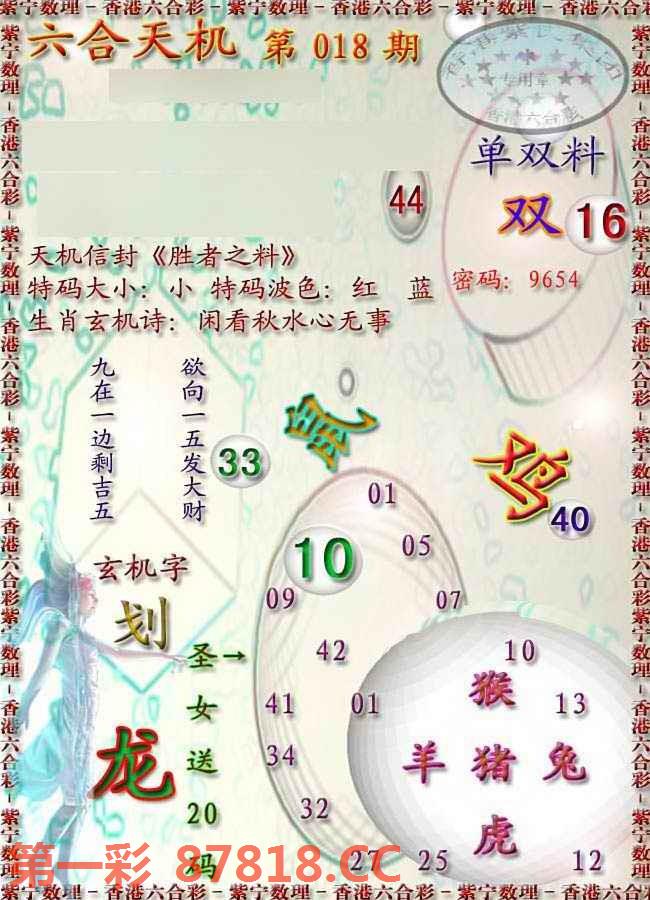 紫宁数理－香港六合彩－紫宁数理－香港六合彩－紫宁数理－香港六合彩
六合天机 第 018 期
专用章
香港六合彩
单双料
双 16
44
天机信封《胜者之料》
特码大小：小 特码波色：红 蓝
密码：9654
生肖玄机诗：闲看秋水心无事
欲向一五发大财
九在一边剩吉五
33
鼠
鸡
40
01
10
05
09
07
玄机字
划
龙
圣→
女
送
20
码
42
41
01
34
32
27
25
10
猴
13
羊 猪 兔
虎
12
第一彩 87818.CC
紫宁数理－香港六合彩－紫宁数理－香港六合彩－紫宁数理－香港六合彩